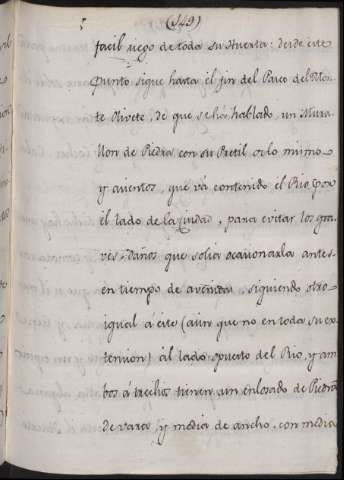 (149)
facil riego de toda su Huerta: desde este
punto sigue hasta el fin del Paseo del Mon-
te Olivete, de que se ha hablado, un Mura-
llon de Piedra con su Pretil de lo mismo
y asientos, que vá conteniendo el Rio, por
el lado de la Ciudad, para evitar los gra-
ves daños que solia ocasionarla antes-
en tiempo de avenidas, siguiendo otro
igual á este (aun que no en toda su ex-
tension) al lado opuesto del Rio, y am-
bos á trechos tienen un enlosado de Piedra
de vara, y media de ancho, con media